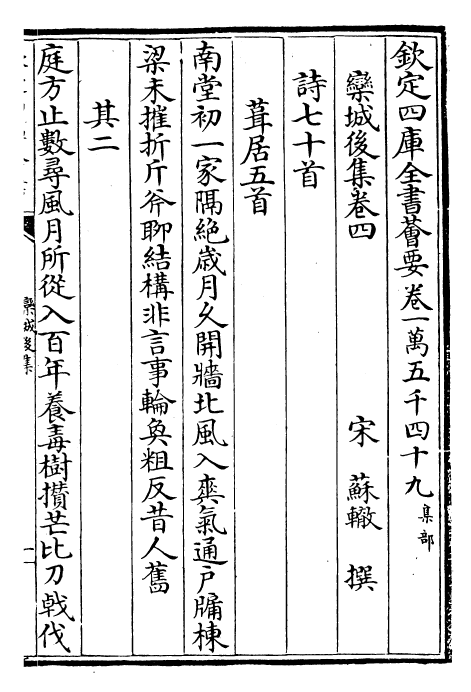 欽定四庫全書薈要卷一萬五千四十九集部
欒城後集卷四 宋 蘇轍 撰
詩七十首
葺居五首
南堂初一家隔絶歳月久開牆北風入爽氣通戸牖棟
梁未摧折斤斧聊結構非言事輪奐粗反昔人舊
其二
庭方止數尋風月所從入百年養毒樹攢芒比刀戟伐
欒城後集
一